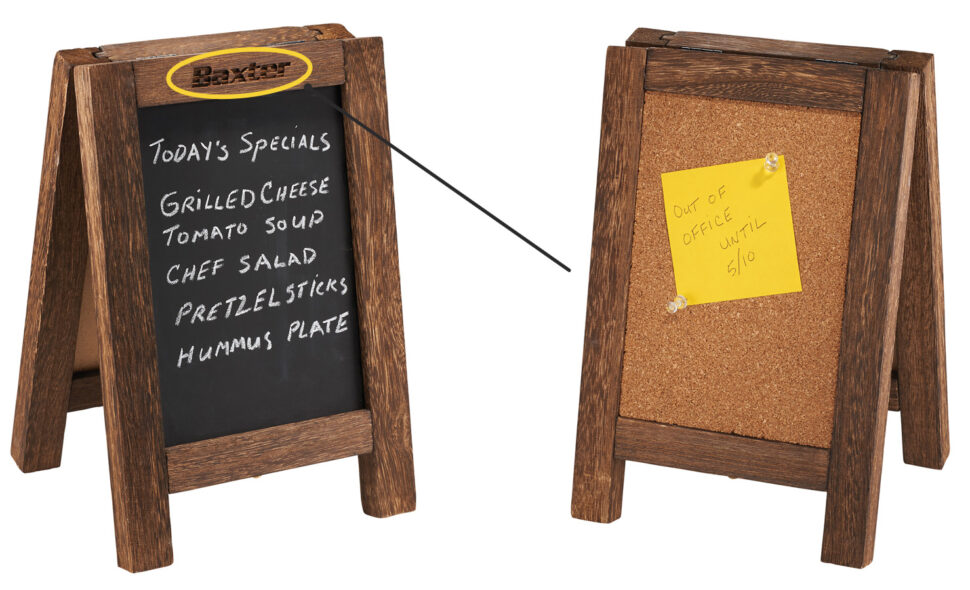 Baxter
TODAY'S SPECIALS
GRILLED CHEESE
TOMATO SOUP
CHEF SALAD
PRETZEL STICKS
HUMMUS PLATE
OUT OF
OFFICE
UNTIL
5/10